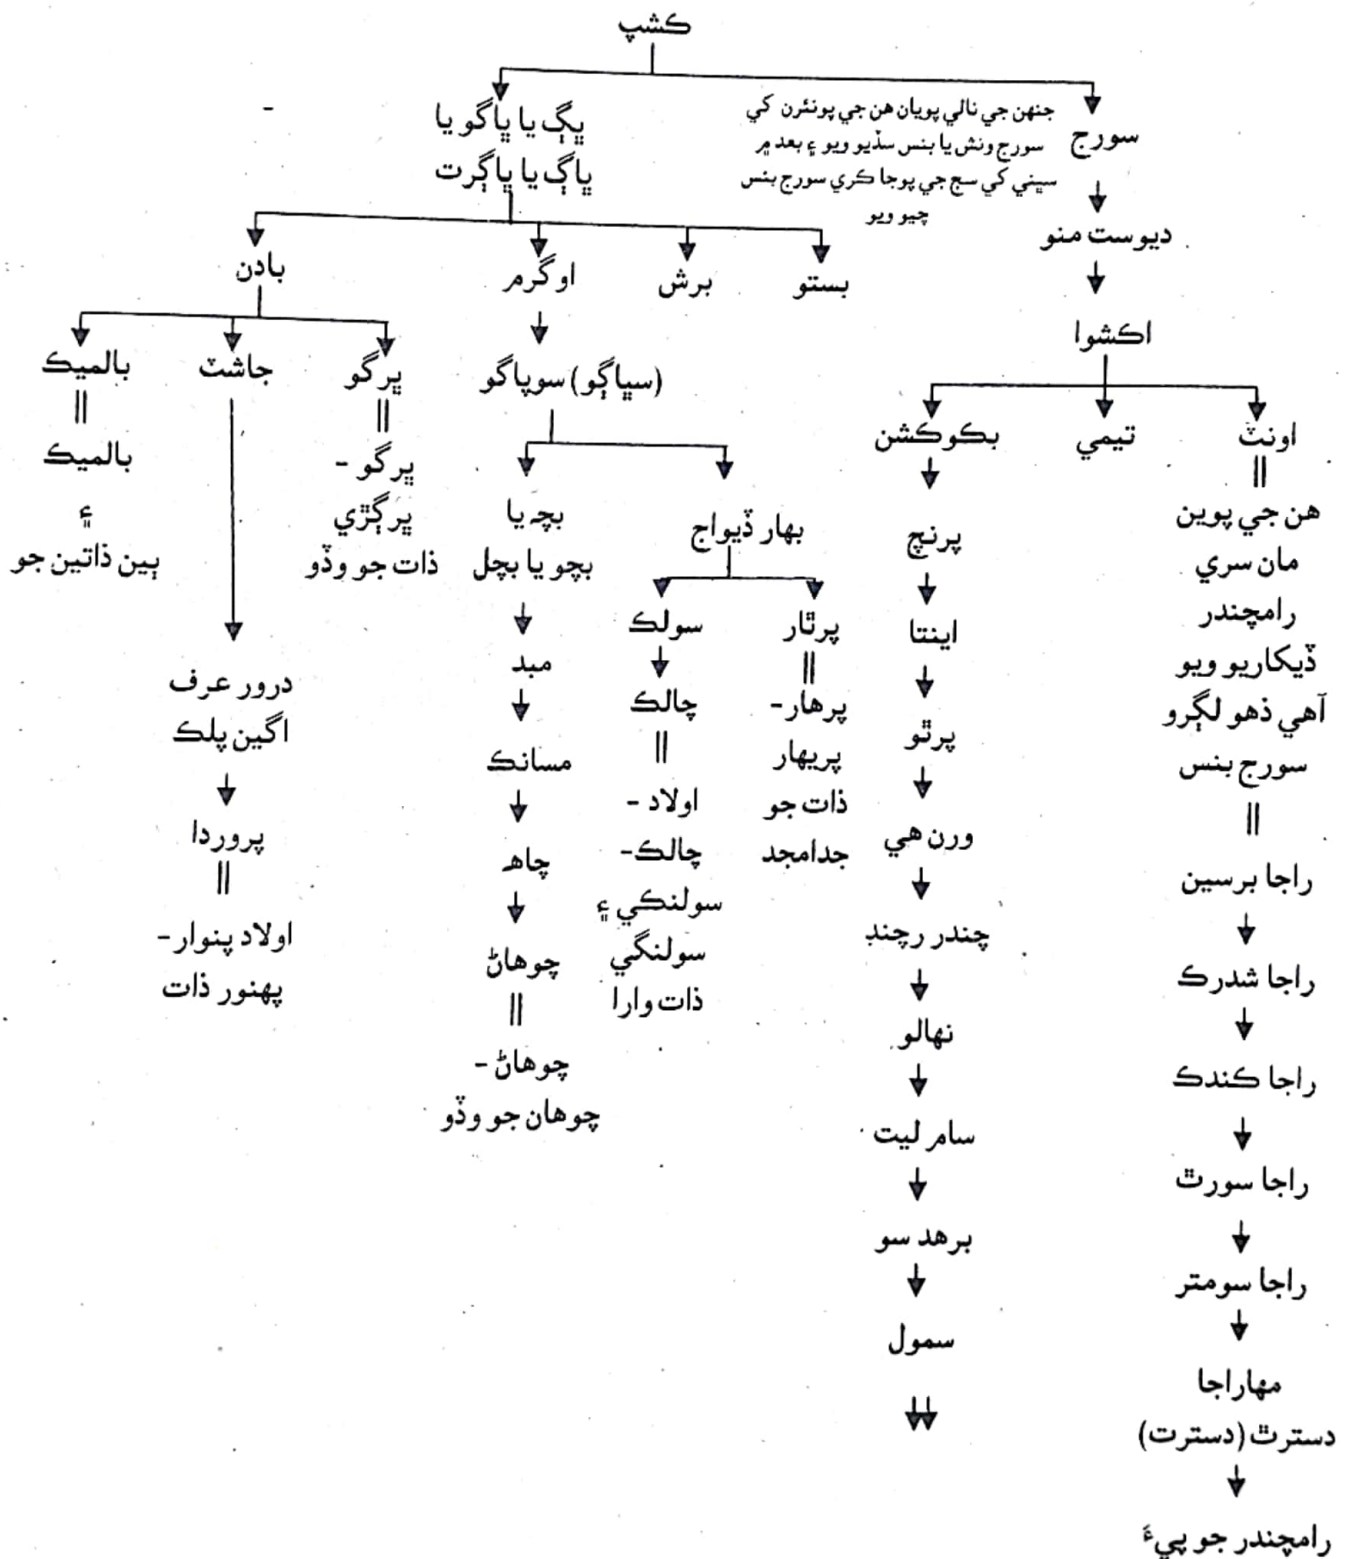 ڪشپ
سورج
جنهن جي نالي پويان هن جي پونئرن کي
سورج ونش يا بنس سڏيو ويو ۽ بعد ۾
سڀني کي سج جي پوجا ڪري سورج بنس
چيو ويو
ڀڳ يا ڀاگو يا
ڀاڳ يا ڀاڳرت
ديوست منو
اڪشوا
اونٽ
هن جي پوين
مان سري
رامچندر
ڏيکاريو ويو
آهي ذهو لڳرو
سورج بنس
راجا برسين
راجا شدرڪ
راجا ڪندڪ
راجا سورٿ
راجا سومتر
مهاراجا
دسترٿ (دسترت)
رامچندر جو پيءَ
تيمي
بڪوڪشن
پرنچ
اينتا
پرٿو
ورن هي
چندر رچند
نهالو
سامر ليت
برهد سو
سمول
بستو
برش
اوگرم
(سڀاڳو) سوپاگو
بهار ڏيواج
پرٿار
پرهار-
پريهار
ذات جو
جدامجد
سولڪ
چالڪ
اولاد -
چالڪ-
سولنڪي ۽
سولنگي
ذات وارا
بچہ يا
بچو يا بچل
مبد
مسانڪ
چاهہ
چوهاڻ
چوهاڻ -
چوهان جو وڏو
بادن
ڀرگو
ڀرگو -
ڀرڳڙي
ذات جو وڏو
جاشٽ
درور عرف
اگين پلڪ
پروردا
اولاد پنوار-
پهنور ذات
بالميڪ
بالميڪ
۽
ٻين ذاتين جو